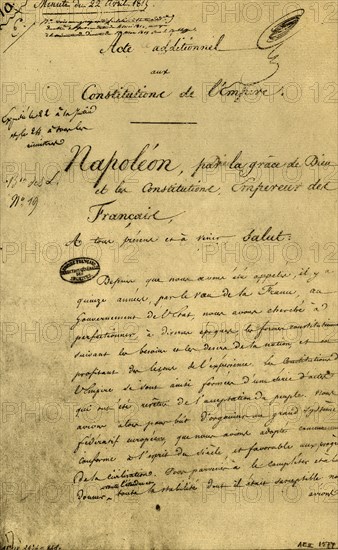 Minute du 22 Avril 1815
Acte additionnel
aux
Constitutions de l'Empire.
Expédié le 22 à la Justice
et le 24 à
Napoléon, par la grâce de Dieu
et les Constitutions, Empereur des
Français,
N° 19
A tous présens et à venir Salut.
Depuis que nous avons été appelés, il y a
quinze années, par le vœu de la France, au
gouvernement de l'Etat, nous avons cherché à
perfectionner, à diverses époques, les formes constitutionnelles
suivant les besoins et les désirs de la nation, et en
profitant des leçons de l'expérience. Les Constitutions de
l'Empire se sont ainsi formées d'une série d'actes
qui ont été revêtus de l'acceptation du peuple. Nous
avions alors pour but d'organiser un grand Système
fédératif européen, que nous avions adopté comme
conforme à l'esprit du siècle, et favorable aux progrès
de la civilisation. Pour parvenir à le compléter et à lui
donner toute l'étendue et toute la stabilité dont il était susceptible, nous
avions
AEII 1577